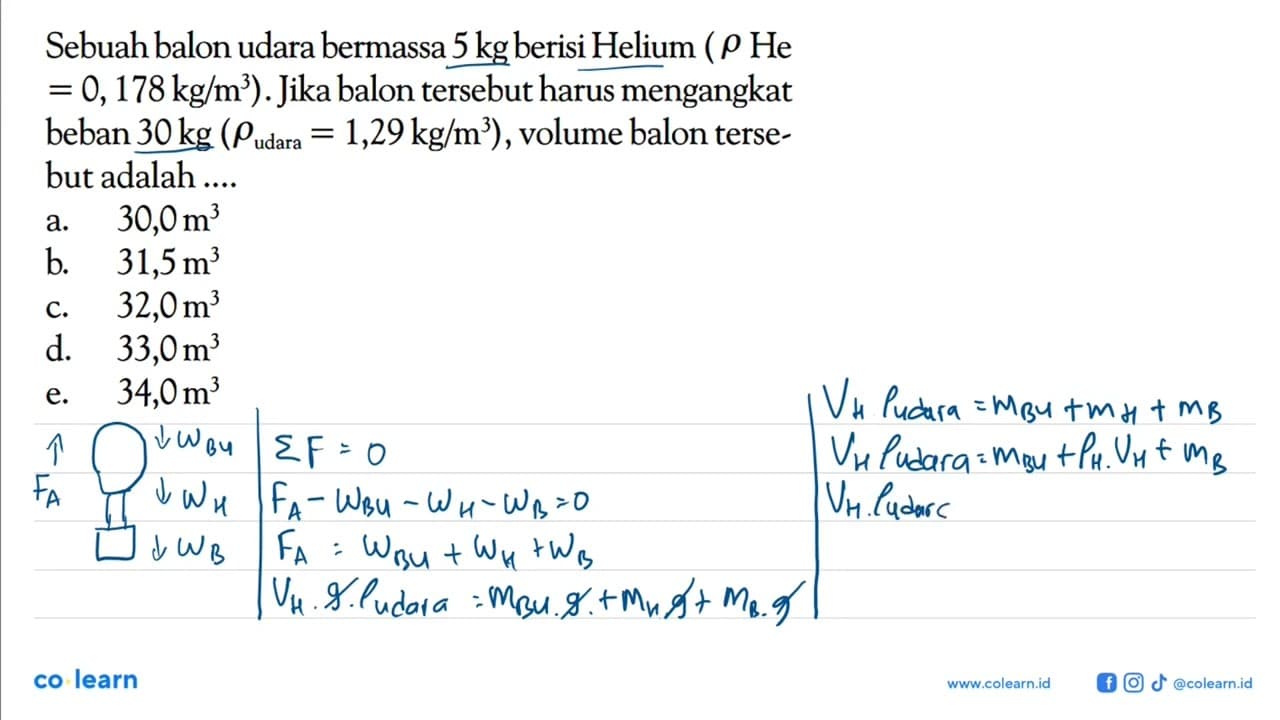 Sebuah balon udara bermassa 5 kg berisi Helium (ρ He
= 0, 178 kg/m³). Jika balon tersebut harus mengangkat
beban 30 kg (ρudara = 1,29 kg/m³), volume balon terse-
but adalah ....
a. 30,0 m³
b. 31,5 m³
c. 32,0 m³
d. 33,0 m³
e. 34,0 m³
↑ FA
↓ WBU
↓ WH
↓ WB
ΣF = 0
FA - WBU - WH - WB = 0
FA = WBU + WH + WB
VH . g . ρudara = mBU . g . + mH g + mB . g
VH ρudara = mBU + mH + mB
VH ρudara = mBU + ρH . VH + mB
VH . ρudarc
co learn
www.colearn.id
@colearn.id